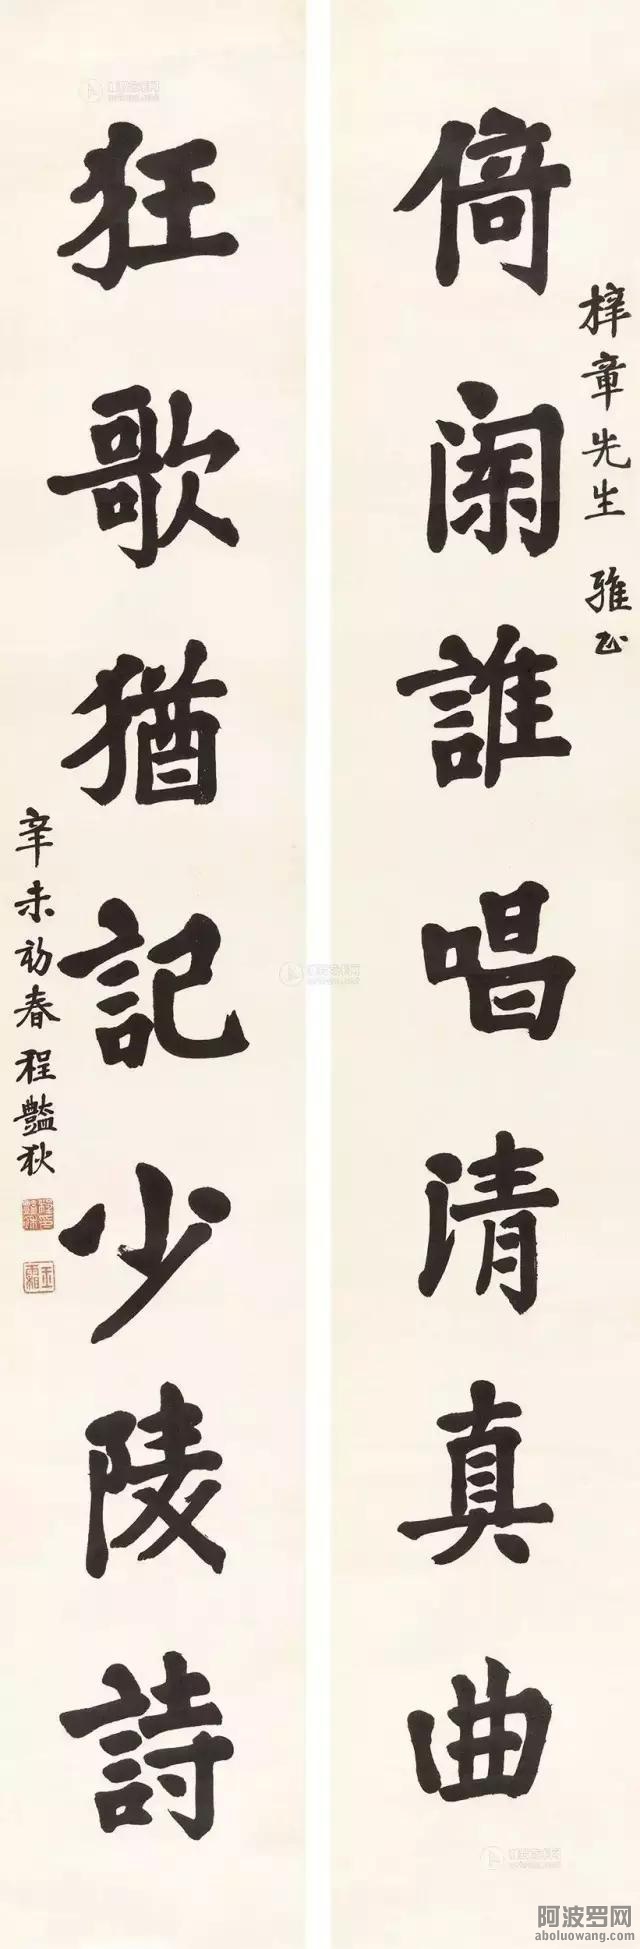 倚闌誰唱清真曲
梓章先生 雅正
狂歌猶記少陵詩
辛未初春 程豔秋
玉霜
阿波罗网
aboluowang.com